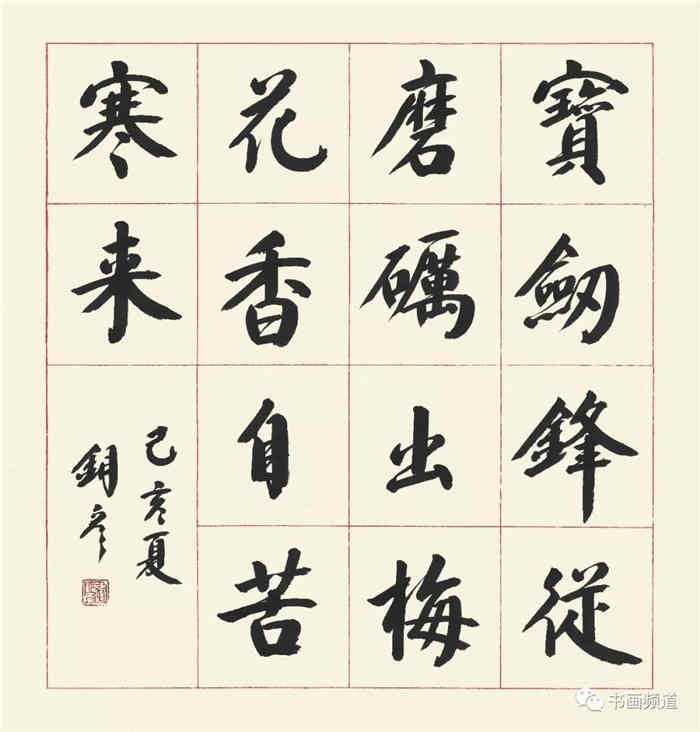 寶劒鋒從
磨礪出梅
花香自苦
寒来
己亥夏
书画频道